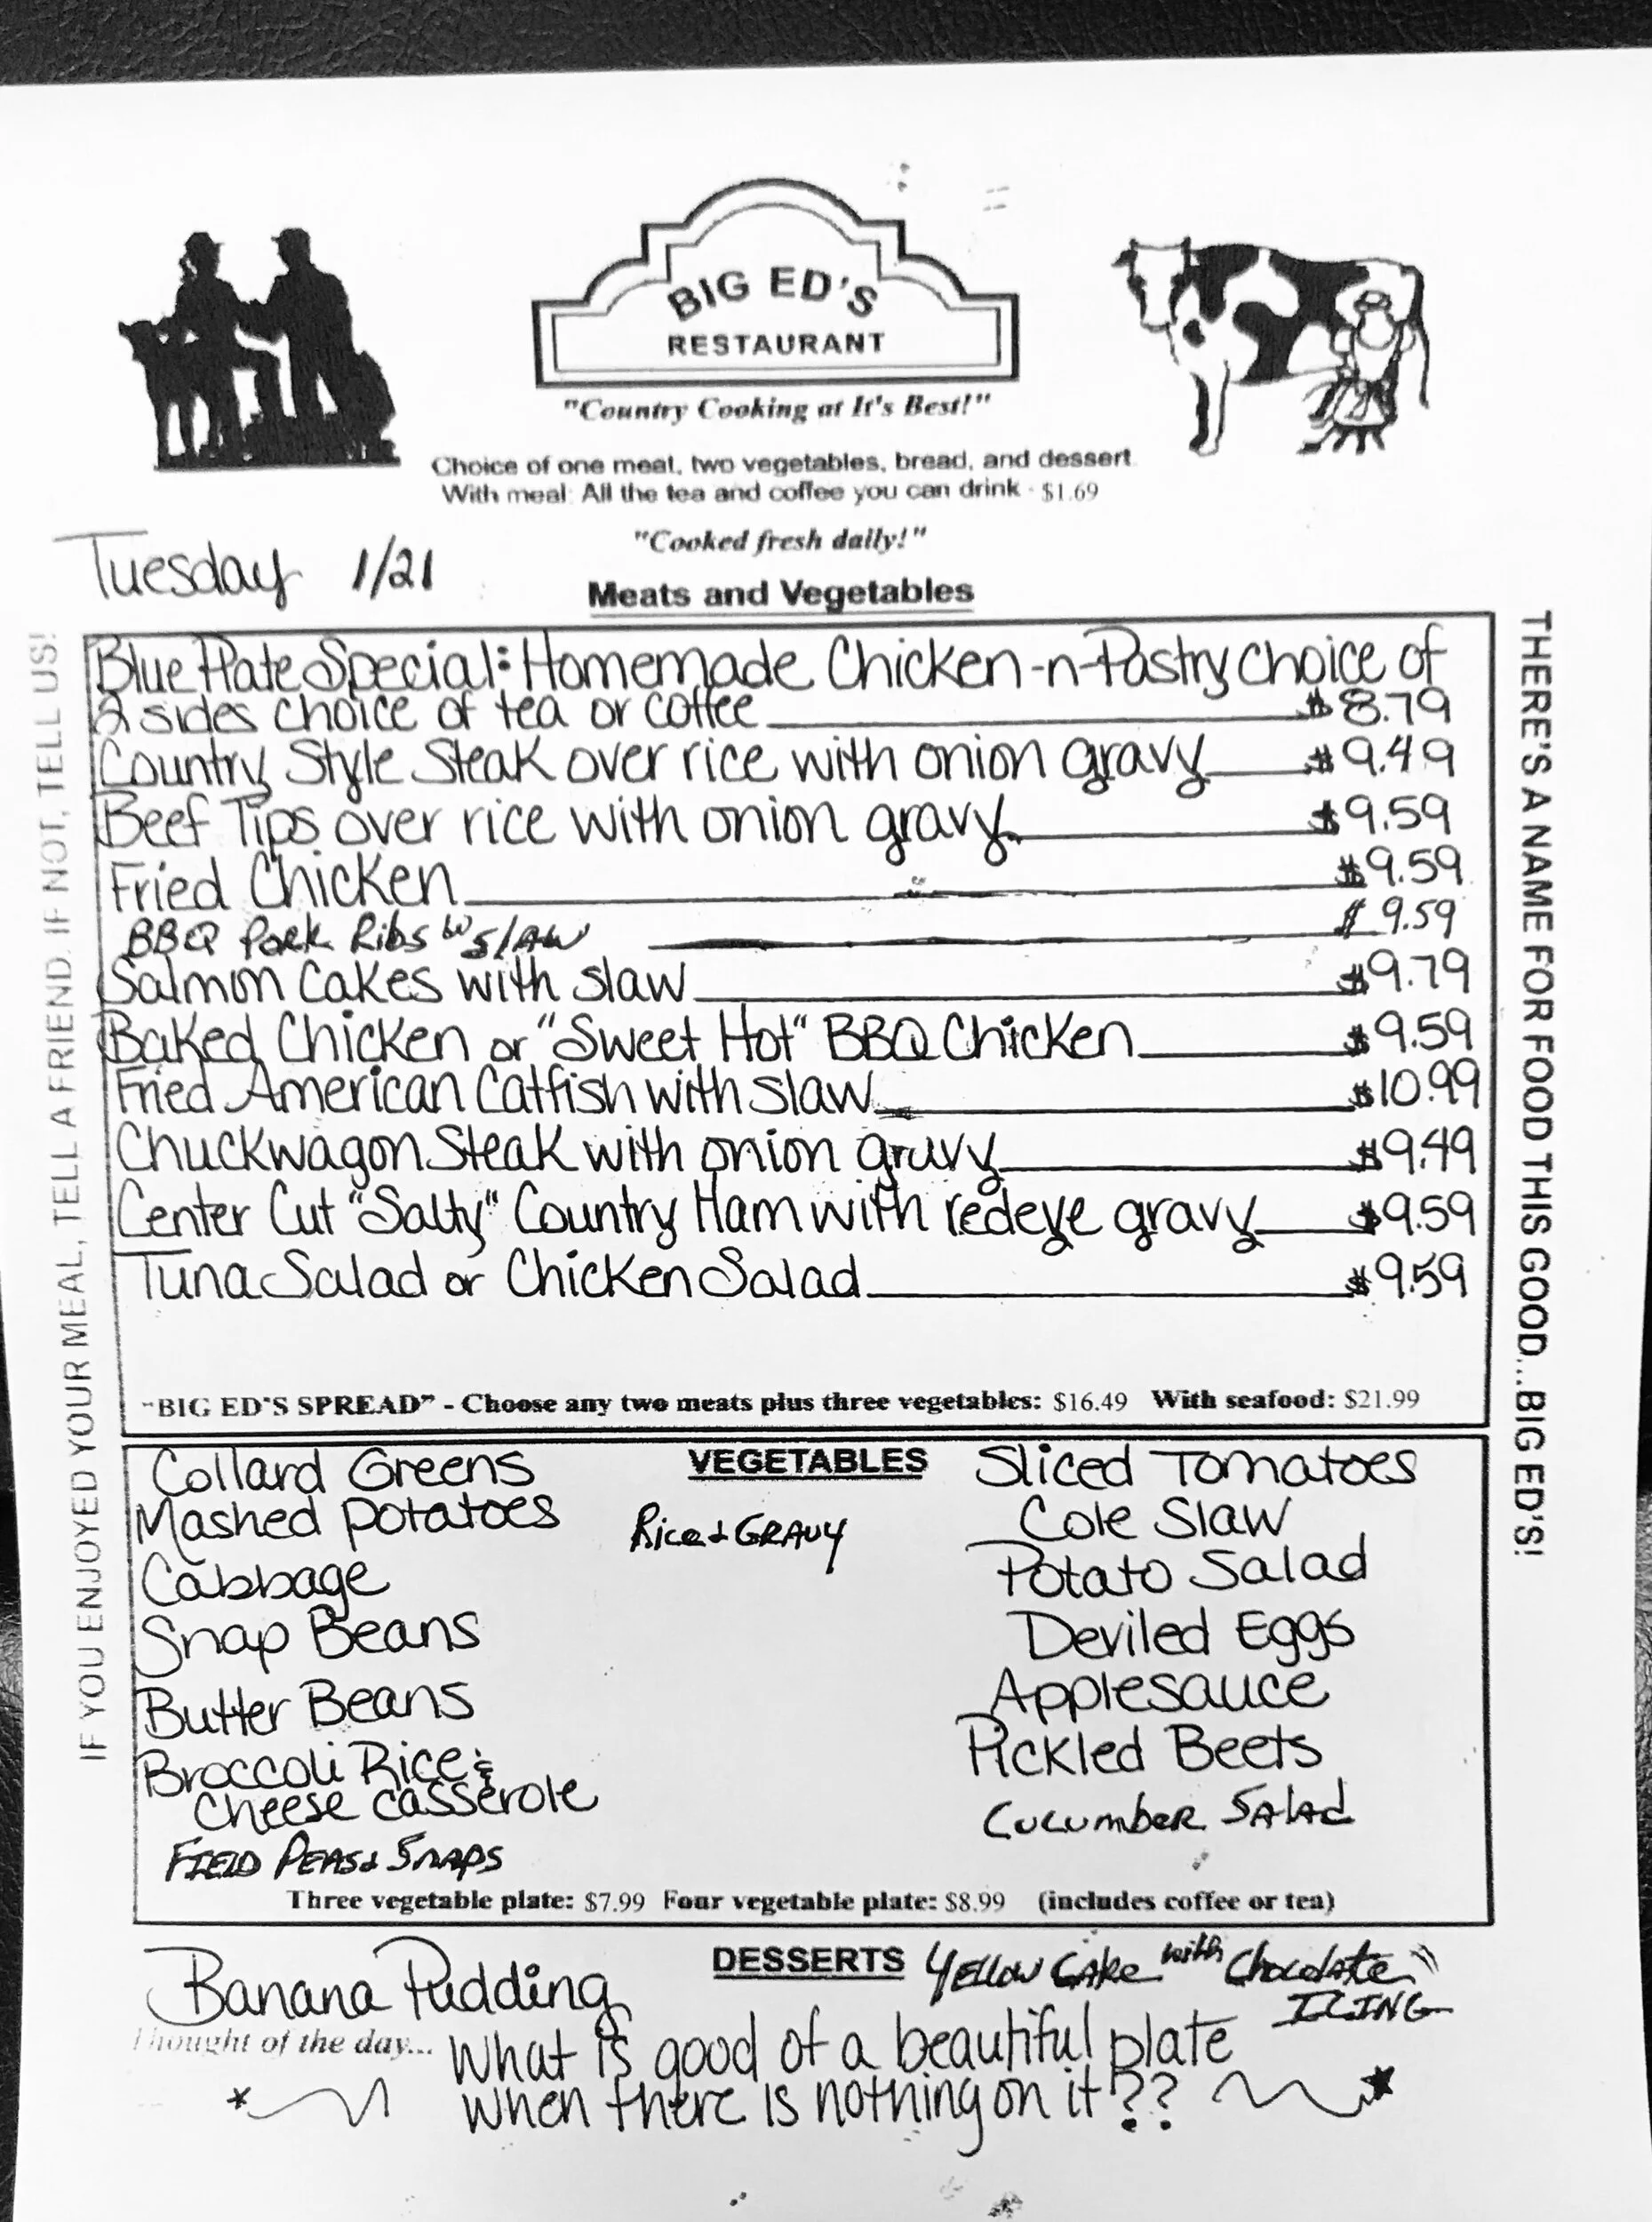 BIG ED'S
RESTAURANT
"Country Cooking at It's Best!"
Choice of one meat, two vegetables, bread, and dessert
With meal: All the tea and coffee you can drink - $1.69
"Cooked fresh daily!"
Tuesday 1/21
Meats and Vegetables
Blue Plate Special: Homemade Chicken-n-Pastry choice of
2 sides choice of tea or coffee $8.79
Country Style Steak over rice with onion gravy $9.49
Beef Tips over rice with onion gravy $9.59
Fried Chicken $9.59
BBQ Pork Ribs w/ slaw $9.59
Salmon Cakes with slaw $9.79
Baked Chicken or "Sweet Hot" BBQ Chicken $9.59
Fried American Catfish with slaw $10.99
Chuckwagon Steak with onion gravy $9.49
Center Cut "Salty" Country Ham with redeye gravy $9.59
Tuna Salad or Chicken Salad $9.59
"BIG ED'S SPREAD" - Choose any two meats plus three vegetables: $16.49 With seafood: $21.99
VEGETABLES
Collard Greens
Mashed Potatoes
Cabbage
Snap Beans
Butter Beans
Broccoli Rice &
Cheese Casserole
Field Peas & Snaps
Rice & GRAVY
Sliced Tomatoes
Cole Slaw
Potato Salad
Deviled Eggs
Applesauce
Pickled Beets
Cucumber Salad
Three vegetable plate: $7.99 Four vegetable plate: $8.99 (includes coffee or tea)
DESSERTS
Banana Pudding
Yellow Cake with Chocolate
ICING
Thought of the day... What is good of a beautiful plate
when there is nothing on it??
IF YOU ENJOYED YOUR MEAL, TELL A FRIEND. IF NOT, TELL US!
THERE'S A NAME FOR FOOD THIS GOOD...BIG ED'S!